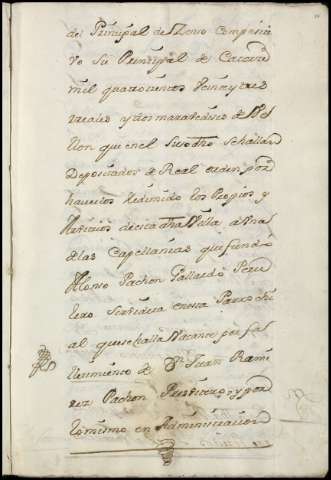 del Principal de Zenso Compesiti
vo su Principal de Catorze
mil quatrocientos treinta y tres
reales y dos maravedises de Ve
llon que en el susodho se hallan
Depositados de Real orden por
haverlos redimido los Propios y
Arvitrios de esta dha Villa a Una
de las Capellanias que fundó
Alonso Pachon Gallardo Perpe
servidera en esta Parrochi
al que se halla Vacante por fa
llecimiento de Dn Juan Rami
rez Pachon Presvitero, y por
lo mismo en Administracion